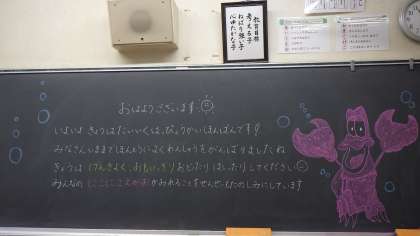 教育目標
考える子
ねばり強い子
心ゆたかな子
おはようございます
いよいよ きょうは だいいくしょうびょうかい ほんばんです!
みなさん いままで ほんとうに よく れんしゅうを がんばりましたね
きょうは げんきよく、おもいっきり おどったり はしったり してください
みんなの にこにこえがおが みれることを せんせいも たのしみにしています